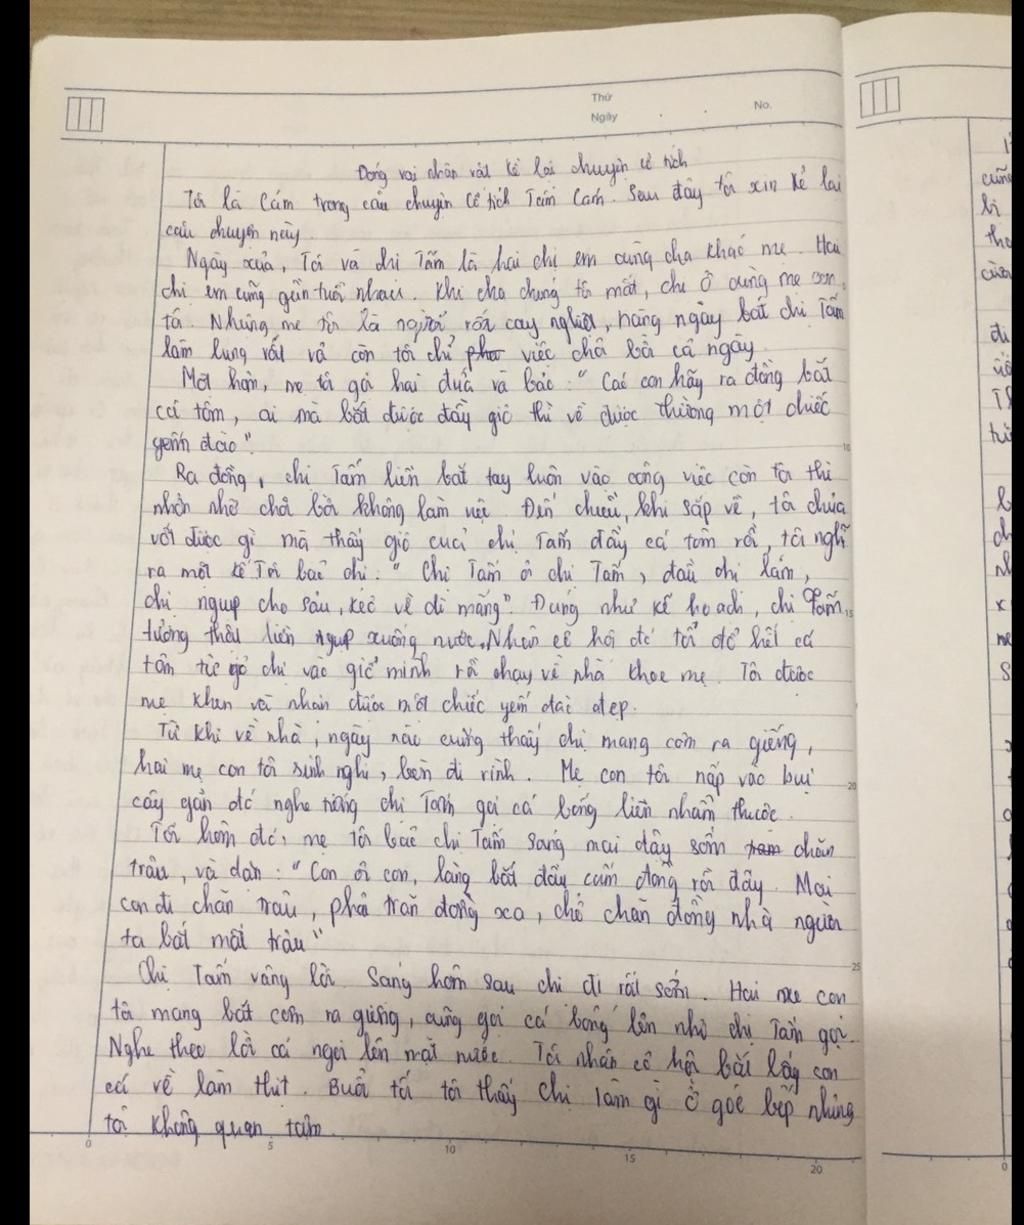 Thứ
Ngày
No.
Đóng vai nhân vật kể lại chuyện cổ tích
Tôi là Cám trong câu chuyện cổ tích Tấm Cám. Sau đây tôi xin kể lại
câu chuyện này.
Ngày xưa, Tôi và chị Tấm là hai chị em cùng cha khác mẹ. Hai
chị em cũng gần tuổi nhau. Khi cha chúng tôi mất, chị ở cùng mẹ con
tôi. Nhưng mẹ tôi là người rất cay nghiệt, hàng ngày bắt chị Tấm
làm lụng vất vả còn tôi chỉ việc chơi bời cả ngày
Một hôm, mẹ tôi gọi hai đứa và bảo: "Các con hãy ra đồng bắt
cá tôm, ai mà bắt được đầy giỏ thì về được thưởng một chiếc
yếm đào"
Ra đồng, chị Tấm liền bắt tay luôn vào công việc còn tôi thì
nhởn nhơ chơi bời không làm việc. Đến chiều, khi sắp về, tôi chưa
vớt được gì mà thấy giỏ của chị Tấm đầy cá tôm rồi, tôi nghĩ
ra một kế Tôi bảo chị: "Chị Tấm ơi chị Tấm, đầu chị lấm,
chị ngụp cho sâu, kẻo về dì mắng". Đúng như kế hoạch, chị Tấm
tưởng thật liền ngụp xuống nước. Nhân cơ hội đó tôi đổ hết cá
tôm từ giỏ chị vào giỏ mình rồi chạy về nhà khoe mẹ. Tôi được
mẹ khen và nhận được một chiếc yếm đào đẹp.
Từ khi về nhà, ngày nào cũng thấy chị mang cơm ra giếng,
hai mẹ con tôi sinh nghi, bèn đi rình. Mẹ con tôi nấp vào bụi
cây gần đó nghe tiếng chị Tấm gọi cá bống liền nhẩm thuộc.
Tối hôm đó, mẹ tôi bảo chị Tấm sáng mai dậy sớm chăn
trâu, và dặn: "Con ơi con, làng bắt đầu cấm đồng rồi đấy. Mai
con đi chăn trâu, phải trăn đồng xa, chớ chăn đồng nhà người
ta bắt mất trâu"
Chị Tấm vâng lời. Sáng hôm sau chị đi rất sớm. Hai mẹ con
tôi mang bát cơm ra giếng, cũng gọi cá bống lên như chị Tấm gọi.
Nghe theo lời cá ngoi lên mặt nước. Tôi nhân cơ hội bắt lấy con
cá về làm thịt. Buổi tối tôi thấy chị làm gì ở góc bếp nhưng
tôi không quan tâm.